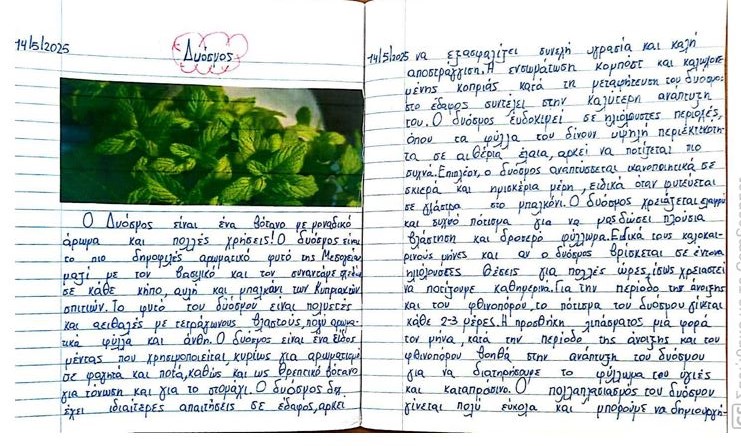 14/5/2025
Δυόσμος
Ο Δυόσμος είναι ένα βότανο με μοναδικό
άρωμα και πολλές χρήσεις! Ο δυόσμος είναι
το πιο δημοφιλές αρωματικό φυτό της Μεσογείου
μαζί με τον βασιλικό και τον συναντάμε σχεδόν
σε κάθε κήπο, αυλή και μπαλκόνι των Κυπριακών
σπιτιών. Το φυτό του δυόσμου είναι πολυετές
και αειθαλές με τετράγωνους βλαστούς, πολύ αρωμα-
τικά φύλλα και άνθη. Ο δυόσμος είναι ένα είδος
μέντας που χρησιμοποιείται κυρίως για αρωματισμό
σε φαγητά και ποτά, καθώς και ως θρεπτικό βότανο
για τόνωση και για το στομάχι. Ο δυόσμος δεν
έχει ιδιαίτερες απαιτήσεις σε έδαφος, αρκεί
14/5/2025
να εξασφαλίζει συνεχή υγρασία και καλή
αποστράγγιση. Η ενσωμάτωση κομπόστ και καλοχωνε-
μένης κοπριάς κατά τη μεταφύτευση του δυόσμου
στο έδαφος συντελεί στην καλύτερη ανάπτυξη
του. Ο δυόσμος ευδοκιμεί σε ηλιόλουστες περιοχές,
όπου τα φύλλα του δίνουν υψηλή περιεκτικότη-
τα σε αιθέρια έλαια, αρκεί να ποτίζεται πιο
συχνά. Επιπλέον, ο δυόσμος αναπτύσσεται ικανοποιητικά σε
σκιερά και ημισκιερά μέρη, ειδικά όταν φυτεύεται
σε γλάστρα στο μπαλκόνι. Ο δυόσμος χρειάζεται
και συχνό πότισμα για να μας δώσει πλούσια
βλάστηση και δροσερό φύλλωμα. Ειδικά τους καλοκαι-
ρινούς μήνες και αν ο δυόσμος βρίσκεται σε έντονα
ηλιόλουστες θέσεις για πολλές ώρες, ίσως χρειαστεί
να ποτίζουμε καθημερινά. Για την περίοδο της άνοιξης
και του φθινοπώρου, το πότισμα του δυόσμου γίνεται
κάθε 2-3 μέρες. Η προσθήκη λιπάσματος μια φορά
τον μήνα, κατά την περίοδο της άνοιξης και του
φθινοπώρου βοηθά στην ανάπτυξη του δυόσμου
για να διατηρήσουμε το φύλλωμα του υγιές
και καταπράσινο. Ο πολλαπλασιασμός του δυόσμου
γίνεται πολύ εύκολα και μπορούμε να δημιουργή-